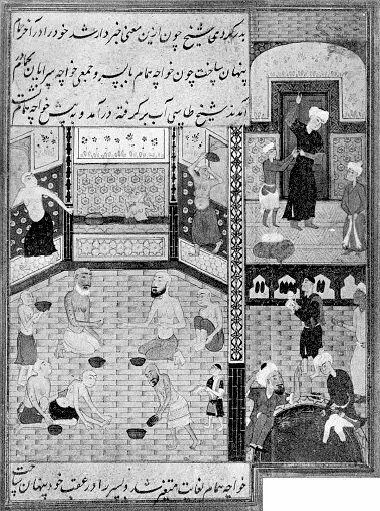 بدر کردی شیخ چون ازین معنی خبردار شد خود را در آخر حمام
پنهان ساخت چون خواجه حمام با پسر و جمعی خواجه سرایان
آمدند شیخ طاسی آب برگرفته درآمد و پیش خواجه حمام
خواجه حمام بغایت متغیر شد و پسر را در عقب خود پنهان ساخت